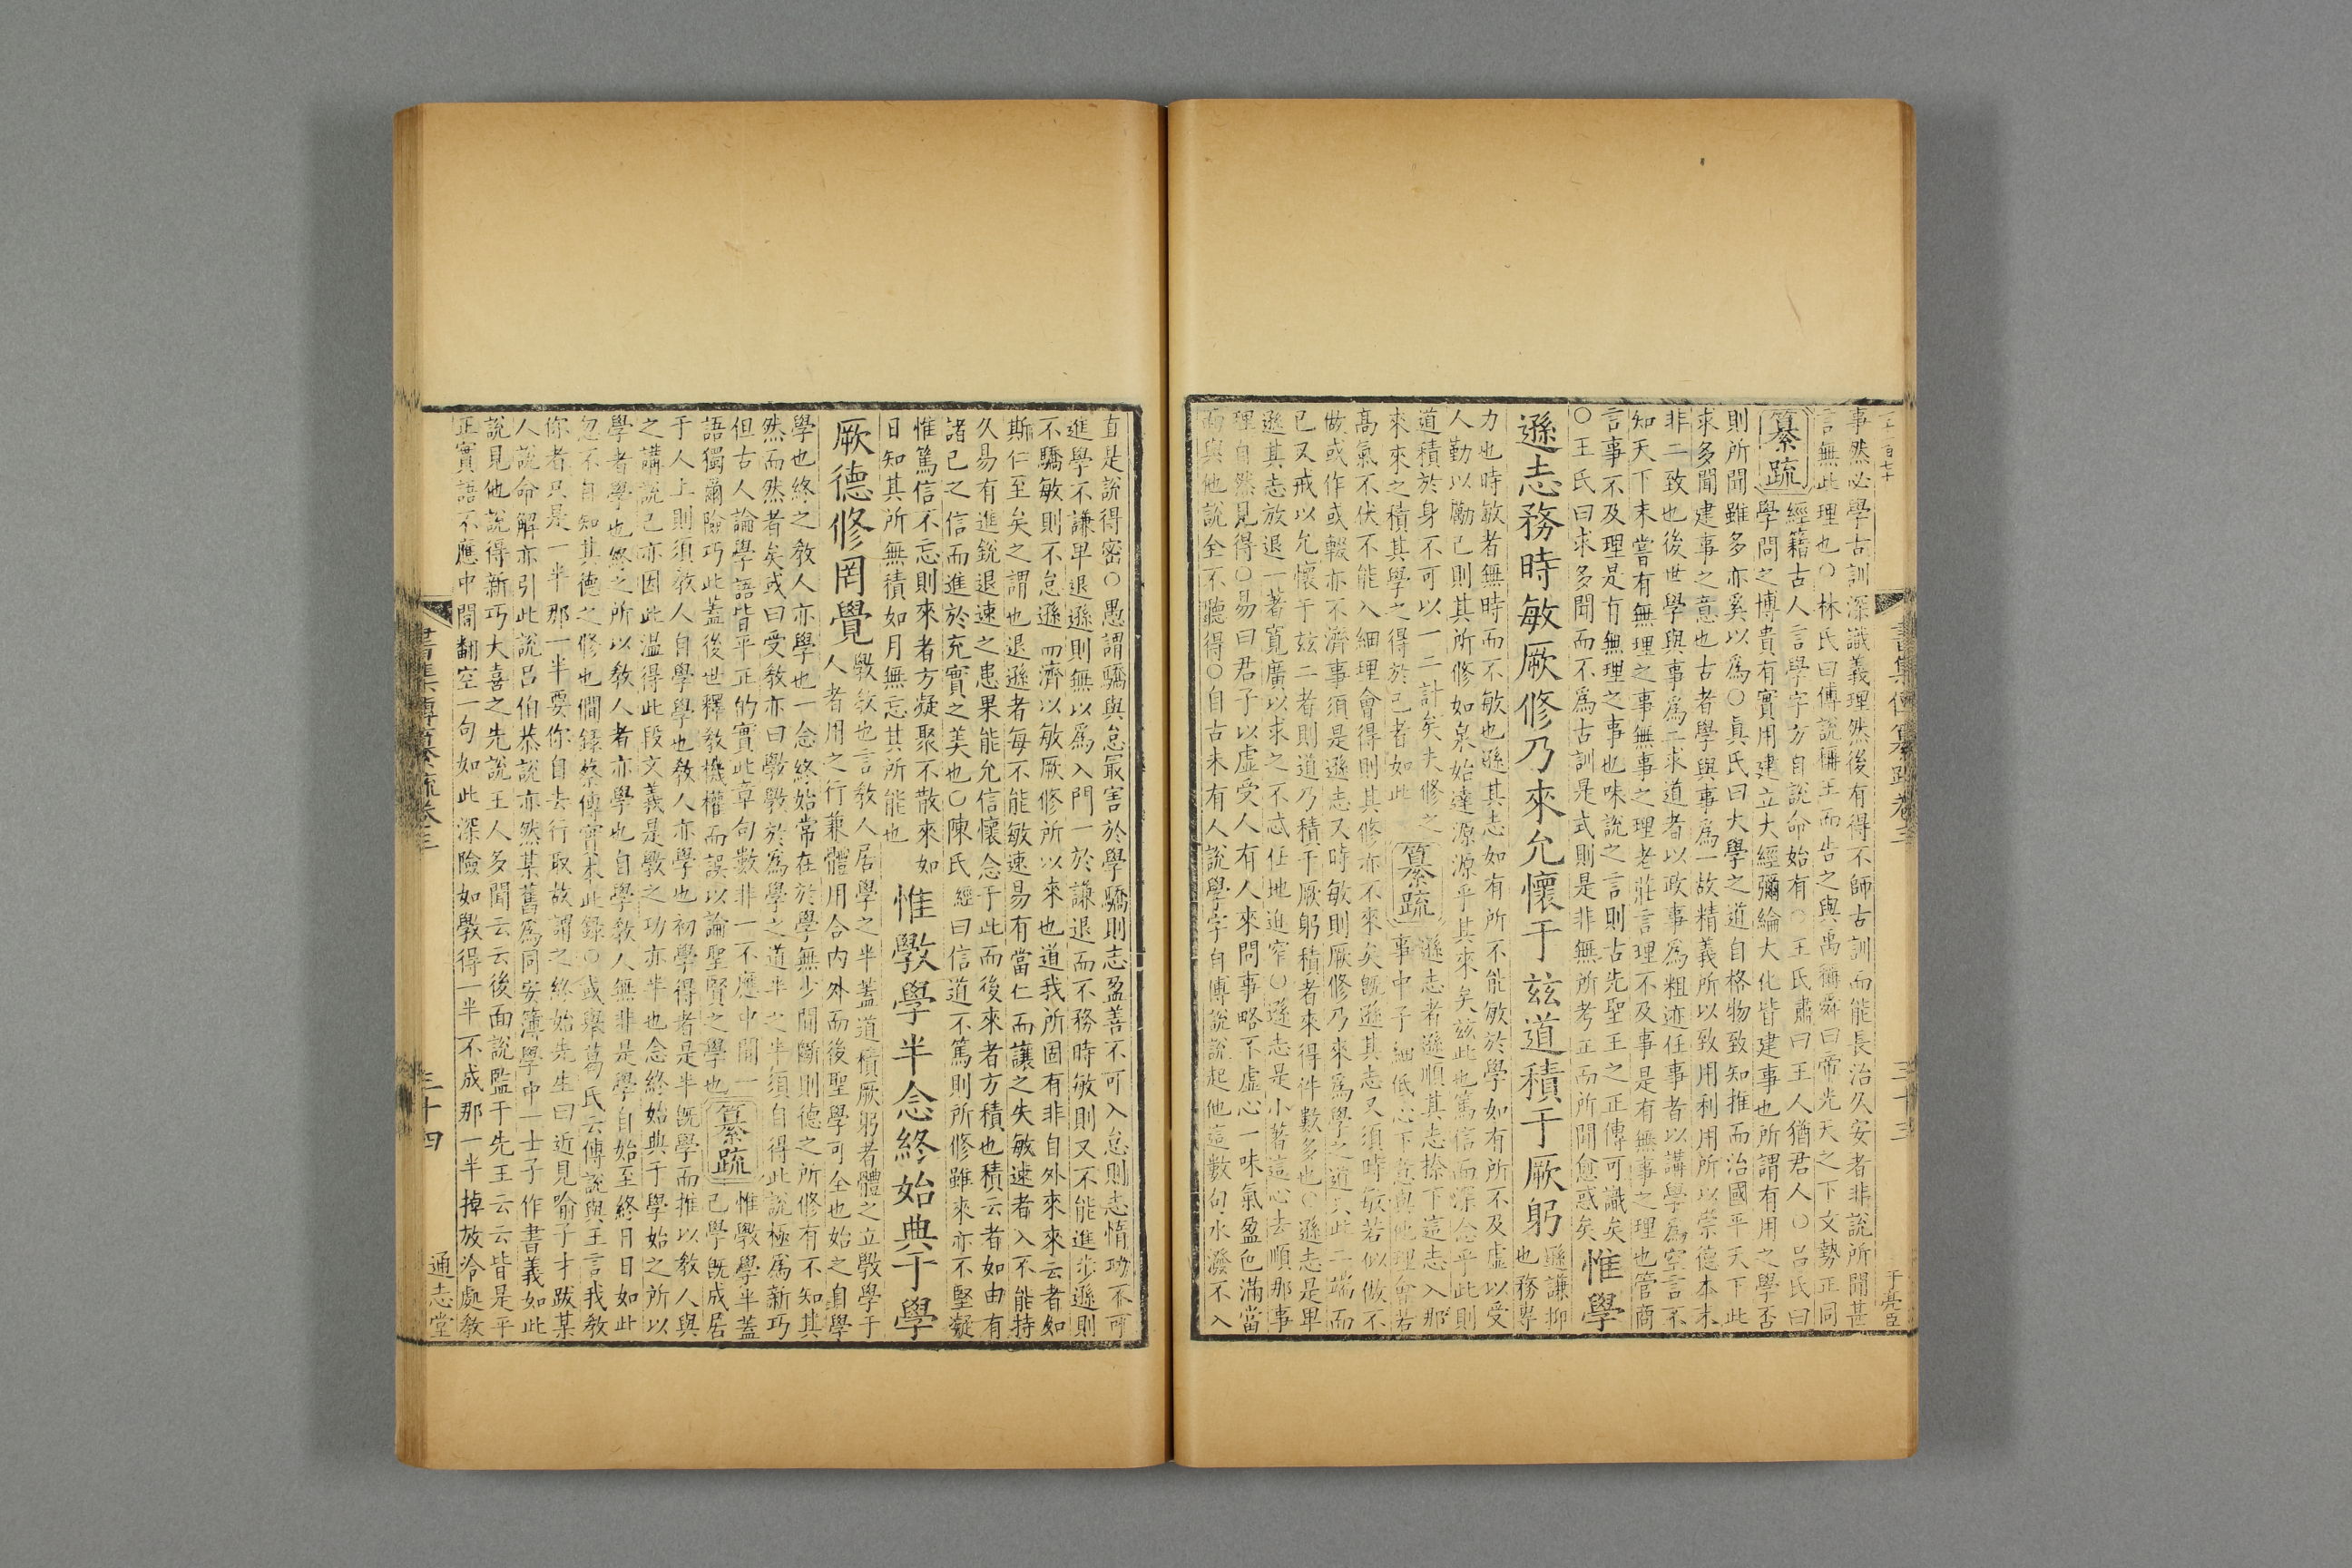 事然必學古訓深識義理然後有得不師古訓而能長治久安者非說所聞甚
言無此理也○林氏曰傅說稱王而告之與禹稱舜曰帝光天之下文勢正同
纂疏經籍古人言學字方自說命始有○王氏肅曰王人猶君人○呂氏曰
學問之博貴有實用建立大經彌綸大化皆建事也所謂有用之學否
則所聞雖多亦奚以為○真氏曰大學之道自格物致知推而治國平天下此
求多聞建事之意也古者學與事為一故精義所以致用利用所以崇德本末
非二致也後世學與事為二求道者以政事為粗迹任事者以講學為空言不
知天下未嘗有無理之事無事之理老莊言理不及事是有無事之理也管商
言事不及理是有無理之事也味說之言則古先聖王之正傳可識矣
○王氏曰求多聞而不為古訓是式則是非無所考正而所聞愈惑矣
惟學
遜志務時敏厥修乃來允懷于茲道積于厥躬
遜謙抑
也務專
力也時敏者無時而不敏也遜其志如有所不能敏於學如有所不及虛以受
人勤以勵己則其所修如泉始達源源乎其來矣茲此也篤信而深念乎此則
道積於身不可以一二計矣夫修之
來來之積其學之得於己者如此
纂疏
遜志者遜順其志捺下這志入那
事中子細低心下意與他理會若
高氣不伏不能入細理會得則其修亦不來矣既遜其志又須時敏若似做不
做或作或輟亦不濟事須是遜志又時敏則厥修乃來為學之道只此二端而
已又戒以允懷于茲二者則道乃積于厥躬積者來得件數多也○遜志是卑
遜其志放退一著寬廣以求之不忒任地迫窄○遜志是小著這心去順那事
理自然見得○易曰君子以虛受人有人來問事略不虛心一味氣盈色滿當
面與他說全不聽得○自古未有人說學字自傅說說起他這數句水潑不入
直是說得密○愚謂驕與怠最害於學驕則志盈善不可入怠則志惰功不可
進學不謙卑退遜則無以為入門一於謙退而不務時敏則又不能進步遜則
不驕敏則不怠遜而濟以敏厥修所以來也道我所固有非自外來來云者如
斯仁至矣之謂也退遜者每不能敏速易有當仁而讓之失敏速者入不能持
久易有進銳退速之患果能允信懷念于此而後來者方積也積云者如由有
諸己之信而進於充實之美也○陳氏經曰信道不篤則所修雖來亦不堅凝
惟篤信不忘則來者方凝聚不散來如
日知其所無積如月無忘其所能也
惟斆學半念終始典于學
厥德修罔覺
斆教也言教人居學之半蓋道積厥躬者體之立斆學于
人者用之行兼體用合內外而後聖學可全也始之自學
學也終之教人亦學也一念終始常在於學無少間斷則德之所修有不知其
然而然者矣或曰受教亦曰斆斆於為學之道半之半須自得此說極為新巧
但古人論學語皆平正的實此章句數非一不應中間一
語獨爾險巧此蓋後世釋教機權而誤以論聖賢之學也
纂疏
惟斆學半蓋
己學既成居
于人上則須教人自學學也教人亦學也初學得者是半既學而推以教人與
之講說己亦因此溫得此段文義是斆之功亦半也念終始典于學始之所以
學者學也終之所以教人者亦學也自學教人無非是學自始至終日日如此
忽不自知其德之修也僩錄蔡傳實本此錄○或舉葛氏云傅說與王言我教
你者只是一半那一半要你自去行取故謂之終始先生曰近見喻子才跋某
人說命解亦引此說呂伯恭說亦然某舊為同安簿學中一士子作書義如此
說見他說得新巧大喜之先說王人多聞云云後面說監于先王云云皆是平
正實語不應中間翻空一句如此深險如斆得一半不成那一半掉放冷處教
書集傳纂疏卷三
三十三
于亮臣
書集傳纂疏卷三
三十四
通志堂